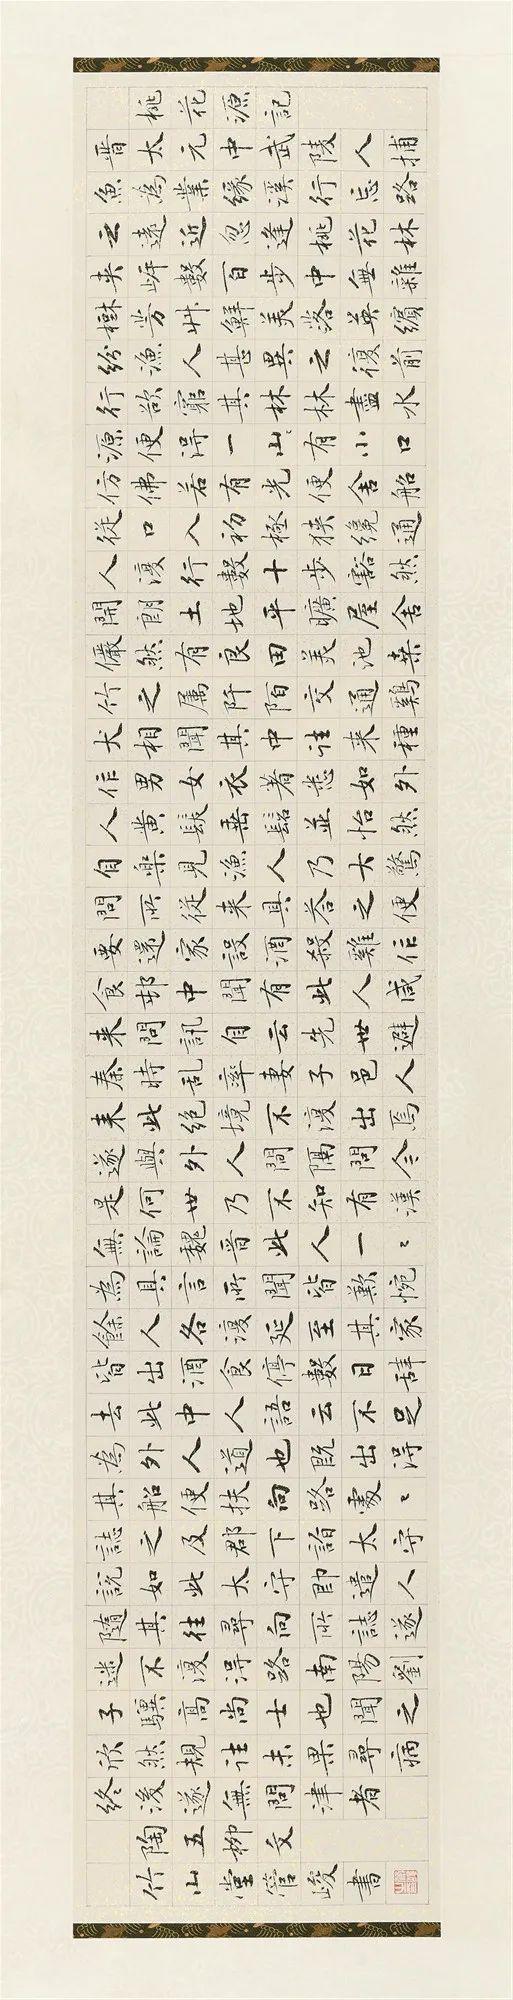 桃花源記
晉太元中武陵人捕
魚為業緣溪行忘路
之遠近忽逢桃花林
夾岸數百步中無雜
樹芳草鮮美落英繽
紛漁人甚異之復前
行欲窮其林林盡水
源便得一山〻有小口
仿佛若有光便舍船
從口入初極狹纔通
人復行數十步豁然
開朗土地平曠屋舍
儼然有良田美池桑
竹之属阡陌交通鷄
犬相聞其中往來種
作男女衣著悉如外
人黄髮垂髫並怡然
自樂見漁人乃大驚
問所從來具答之便
要還家設酒殺雞作
食邨中聞有此人咸
來問訊自云先世避
秦時乱率妻子邑人
來此絶境不復出焉
遂與外人間隔問今
是何世乃不知有漢
無論魏晋此人一〻
為具言所聞皆歎惋
餘人各復延至其家
皆出酒食停數日辞
去此中人語云不足
為外人道也既出得
其船便扶向路處〻
誌之及郡下詣太守
說如此太守即遣人
隨其往尋向所誌遂
迷不復得路南陽劉
子驥高尚士也聞之
欣然規往未果尋病
終後遂無問津者
陶五柳文
竹山堂管峻書